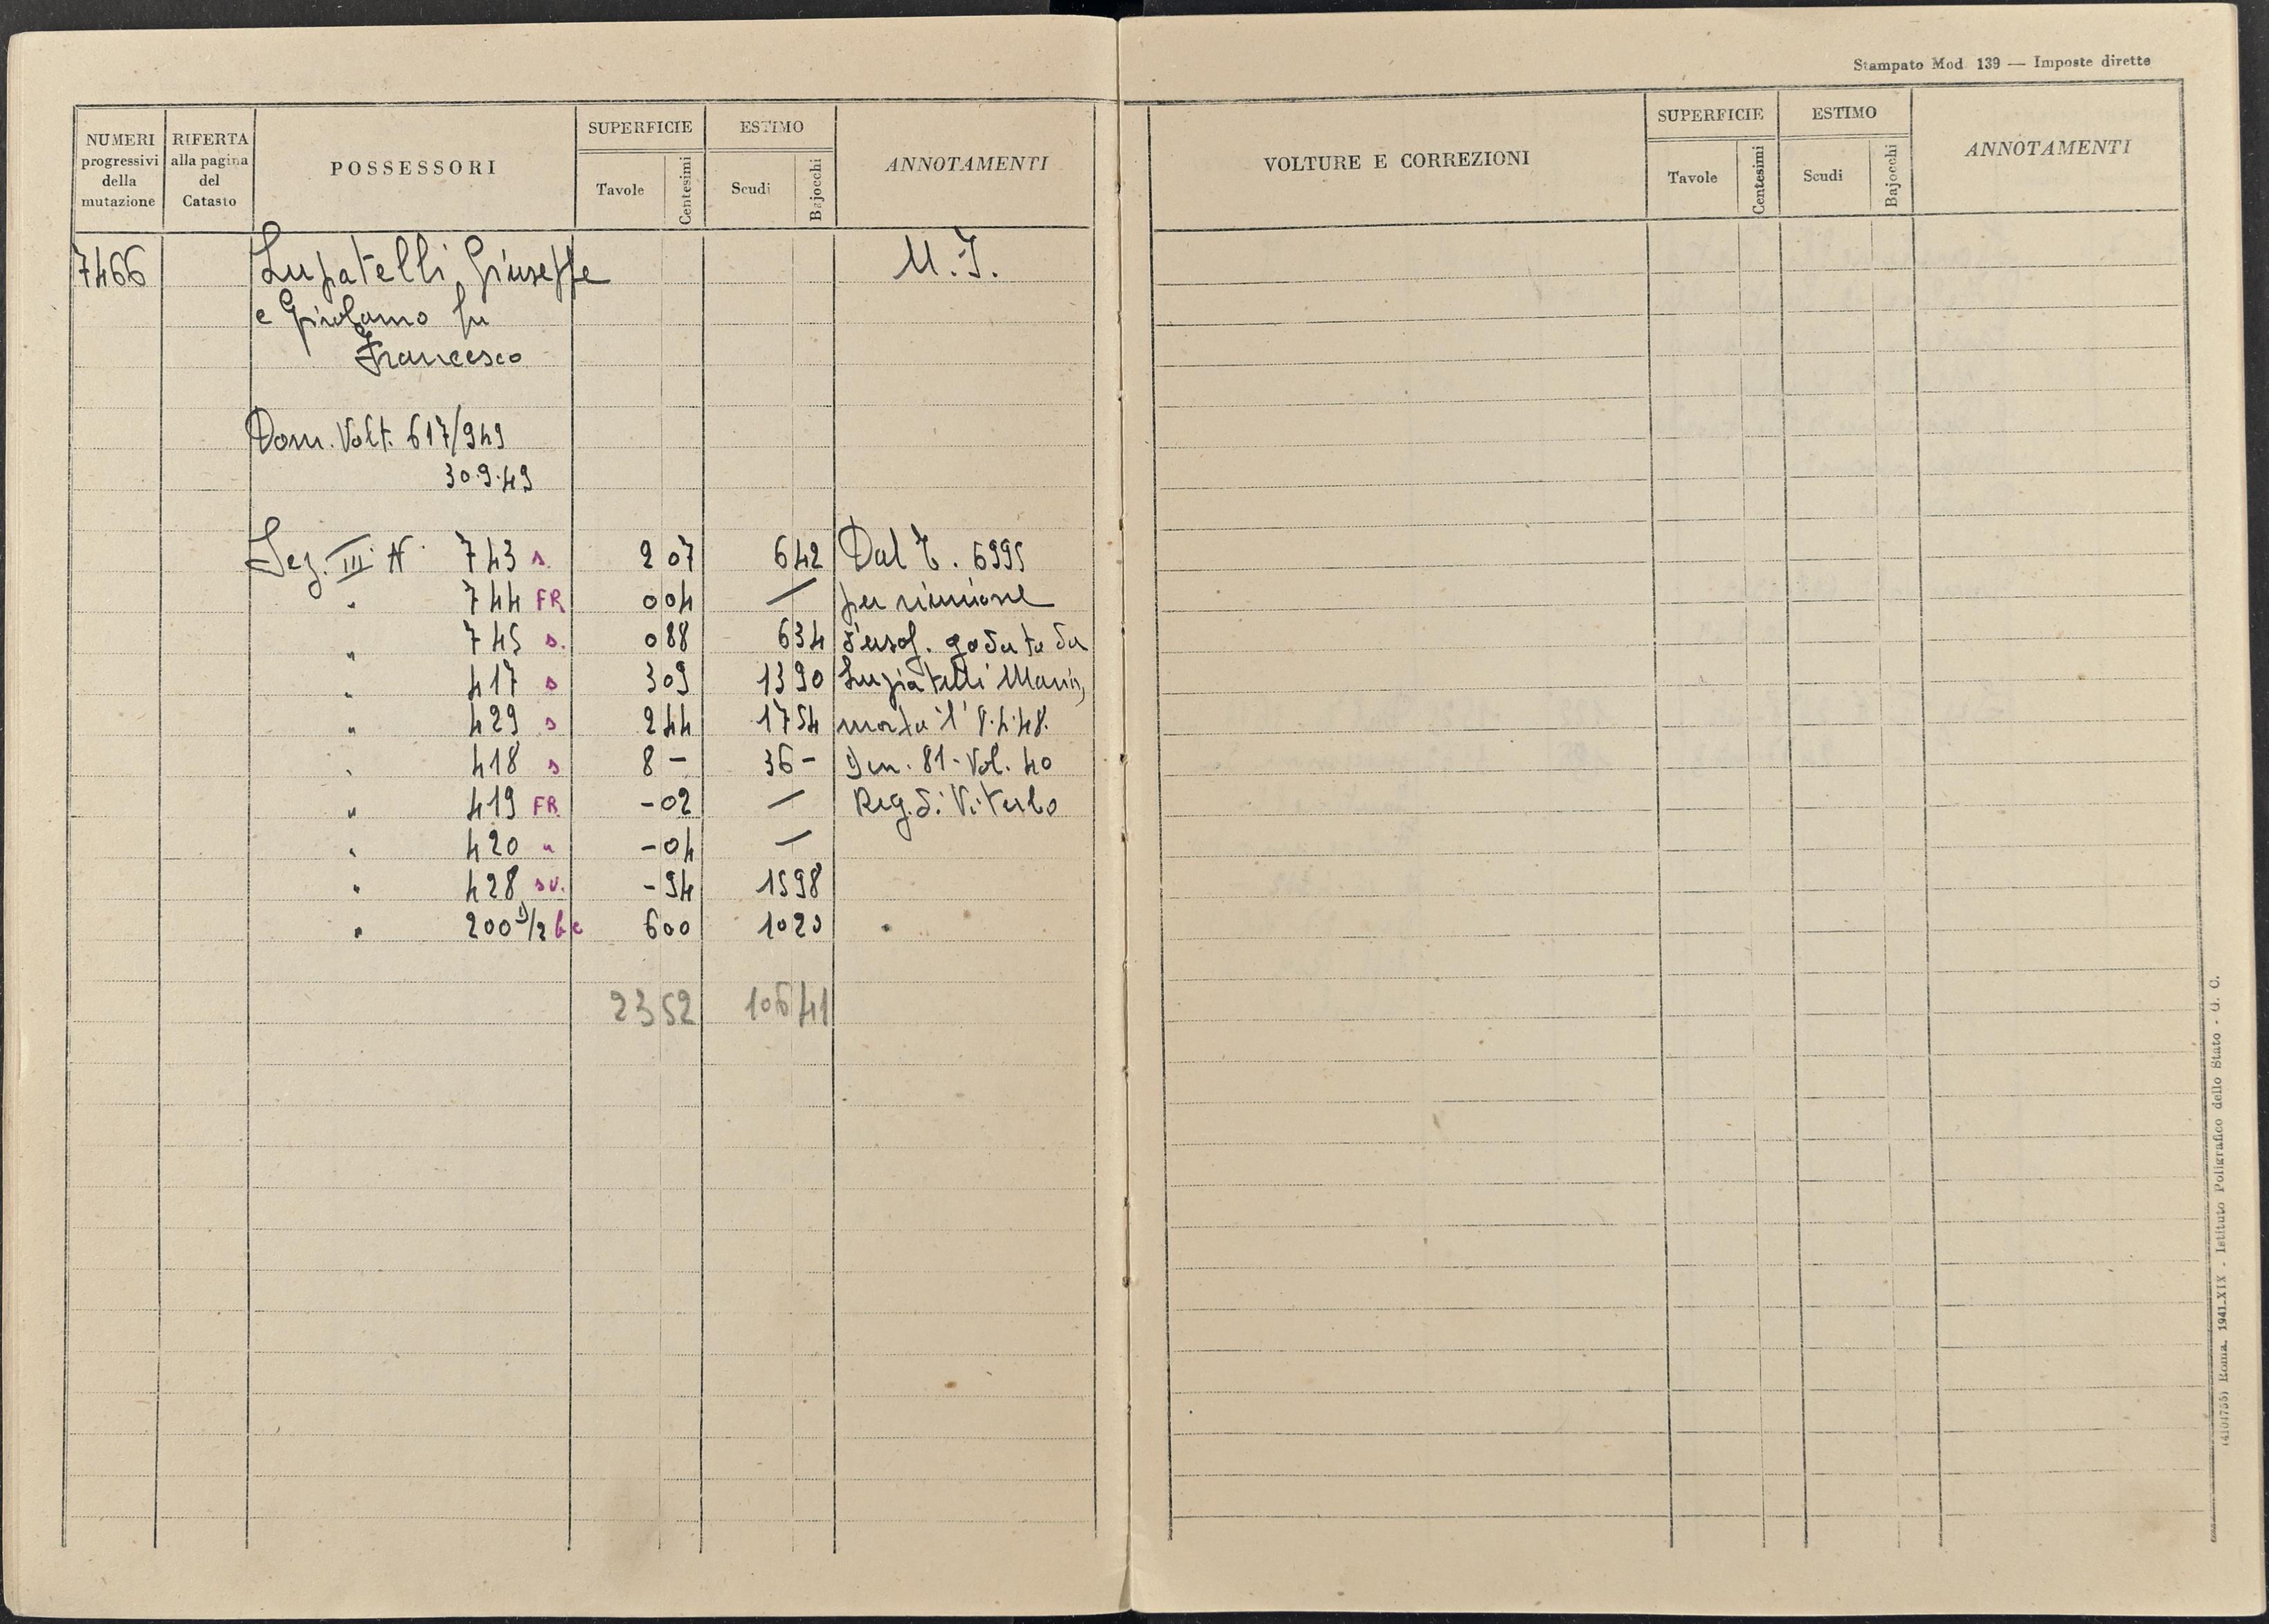 Stampato Mod. 139 — Imposte dirette
NUMERI progressivi della mutazione | RIFERTA alla pagina del Catasto | POSSESSORI | SUPERFICIE Tavole Centesimi | ESTIMO Scudi Bajocchi | ANNOTAMENTI
VOLTURE E CORREZIONI | SUPERFICIE Tavole Centesimi | ESTIMO Scudi Bajocchi | ANNOTAMENTI
7466 Lupatelli Giuseppe M.I.
e Girolamo fu
Francesco
Dom. Volt. 617/949
30.9.49
Sez. III N. 743 s. 2 07 6 42 Dal T. 6995
" 744 FR 0 04 — per riunione
" 745 s. 0 88 6 34 d'usof. goduto da
" 417 s 3 09 13 90 Lupatelli Maria,
" 429 s 2 44 17 54 morta l' 8.4.48.
" 418 s 8 - 36 - Den. 81 - Vol. 40
" 419 FR - 02 — Reg. di Viterbo
" 420 " - 04 —
" 428 sv. - 94 15 98
" 200 1)/2 bc 6 00 10 20
23 52 106 41
(4104755) Roma, 1941-XIX - Istituto Poligrafico dello Stato - G. C.